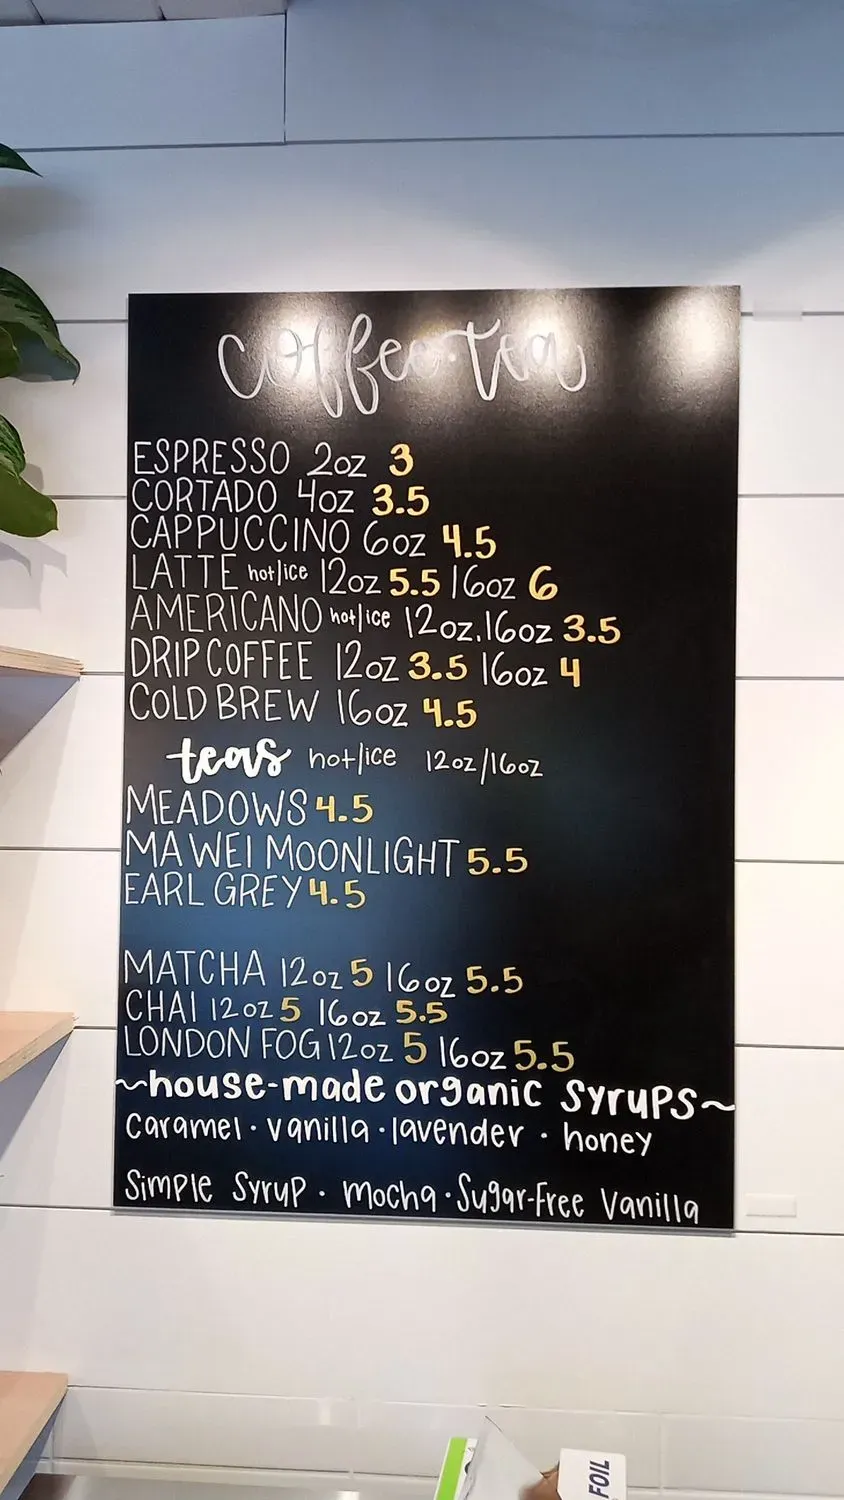 coffee·tea
ESPRESSO 2oz 3
CORTADO 4oz 3.5
CAPPUCCINO 6oz 4.5
LATTE hot/ice 12oz 5.5 16oz 6
AMERICANO hot/ice 12oz.16oz 3.5
DRIP COFFEE 12oz 3.5 16oz 4
COLD BREW 16oz 4.5
teas hot/ice 12oz/16oz
MEADOWS 4.5
MA WEI MOONLIGHT 5.5
EARL GREY 4.5
MATCHA 12oz 5 16oz 5.5
CHAI 12oz 5 16oz 5.5
LONDON FOG 12oz 5 16oz 5.5
~house-made organic syrups~
caramel · vanilla · lavender · honey
Simple Syrup · mocha · Sugar-Free Vanilla
FOIL